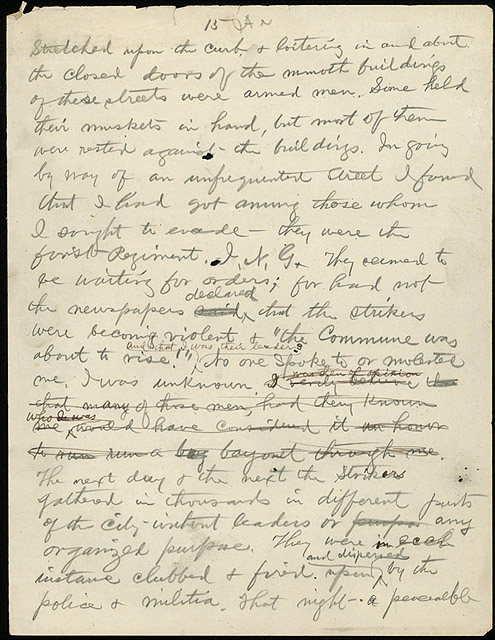 15 
Stretched upon the curb & loitering in and about
the closed doors of the mamoth buildings
of these streets were armed men. Some held
their muskets in hand, but most of them
were rested against the buildings. In going
by way of an unfrequented street I found
that I had got among those whom
I sought to evade - they were the
First Regiment. I. N. G. They seemed to
be waiting for orders; for had not
declared
the newspapers said, that the strikers
were becoming violent & "the Commune was
and that I was their leader?
about to rise!" No one I spoke to or molested
me. I was unknown. I verily believe the
was then of opinion
that many of those men, had they known
who I was
me would have considered it an honor
to run a bayonet through me.
The next day & the next the Strikers
gathered in thousands in different parts
of the City without leaders or purpose any
organized purpose. They were in each
and dispersed
instance clubbed & fired upon by the
police & militia. That night - a peaceable